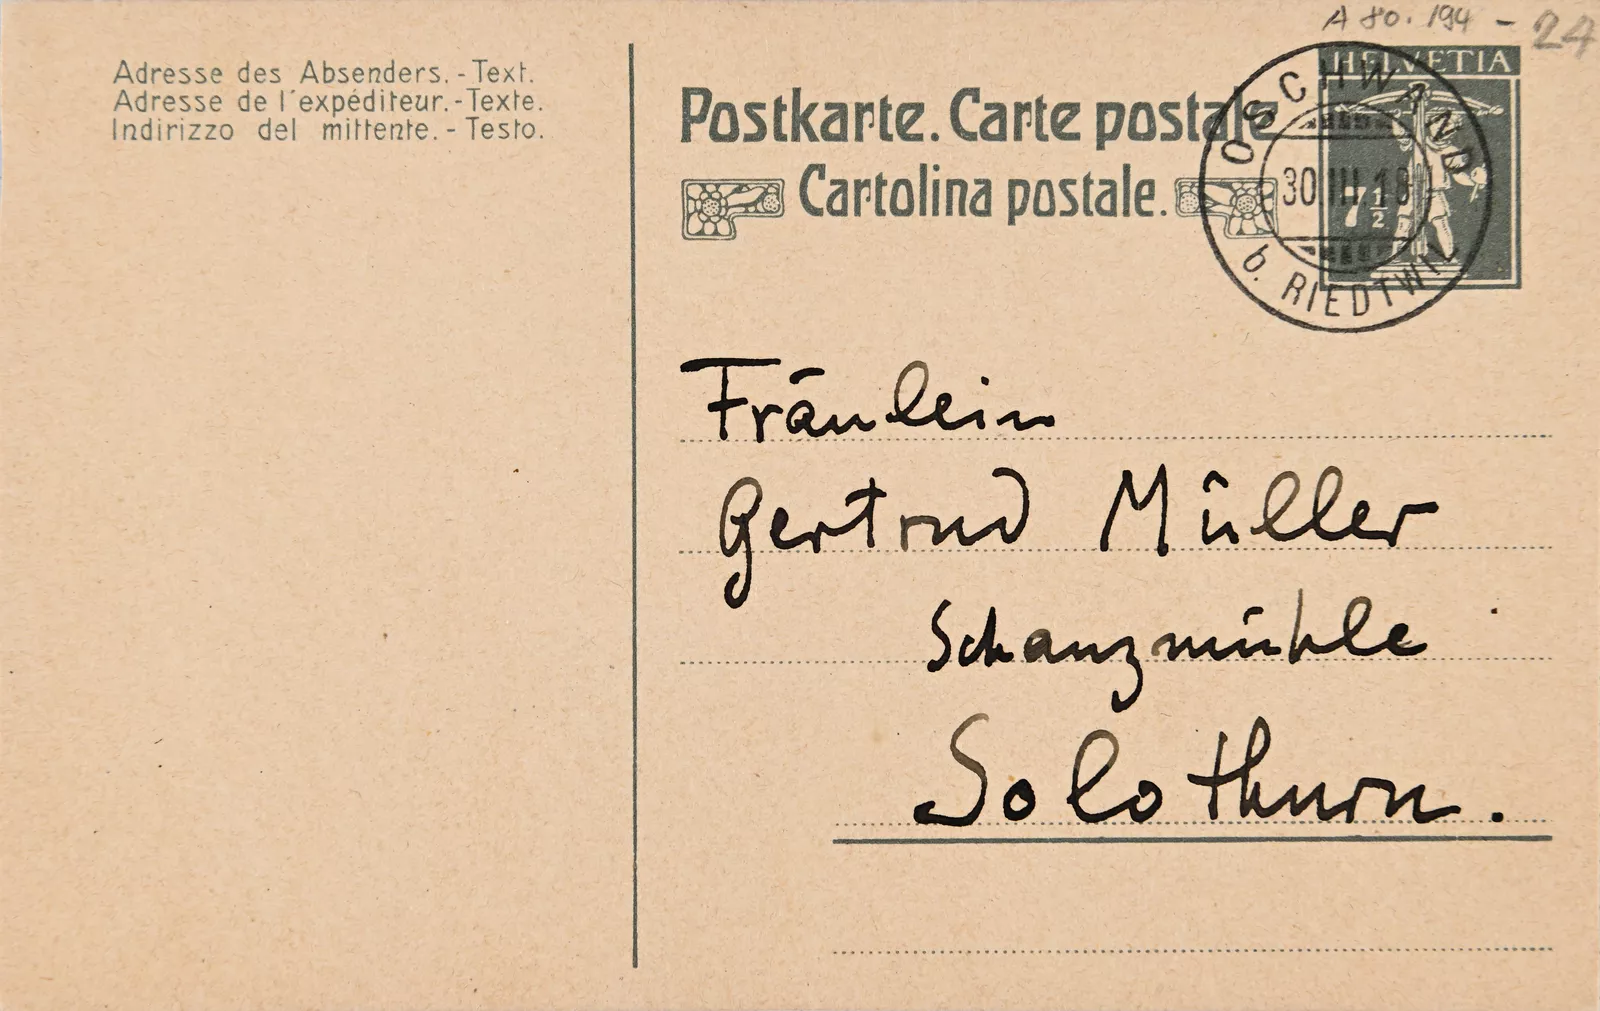 A 80.194 - 24
Adresse des Absenders. - Text.
Adresse de l'expéditeur. - Texte.
Indirizzo del mittente. - Testo.
Postkarte. Carte postale
Cartolina postale.
HELVETIA
7½
OSCHWAND
30.III.18
b. RIEDTWIL
Fräulein
Gertrud Müller
Schanzmühle
Solothurn.